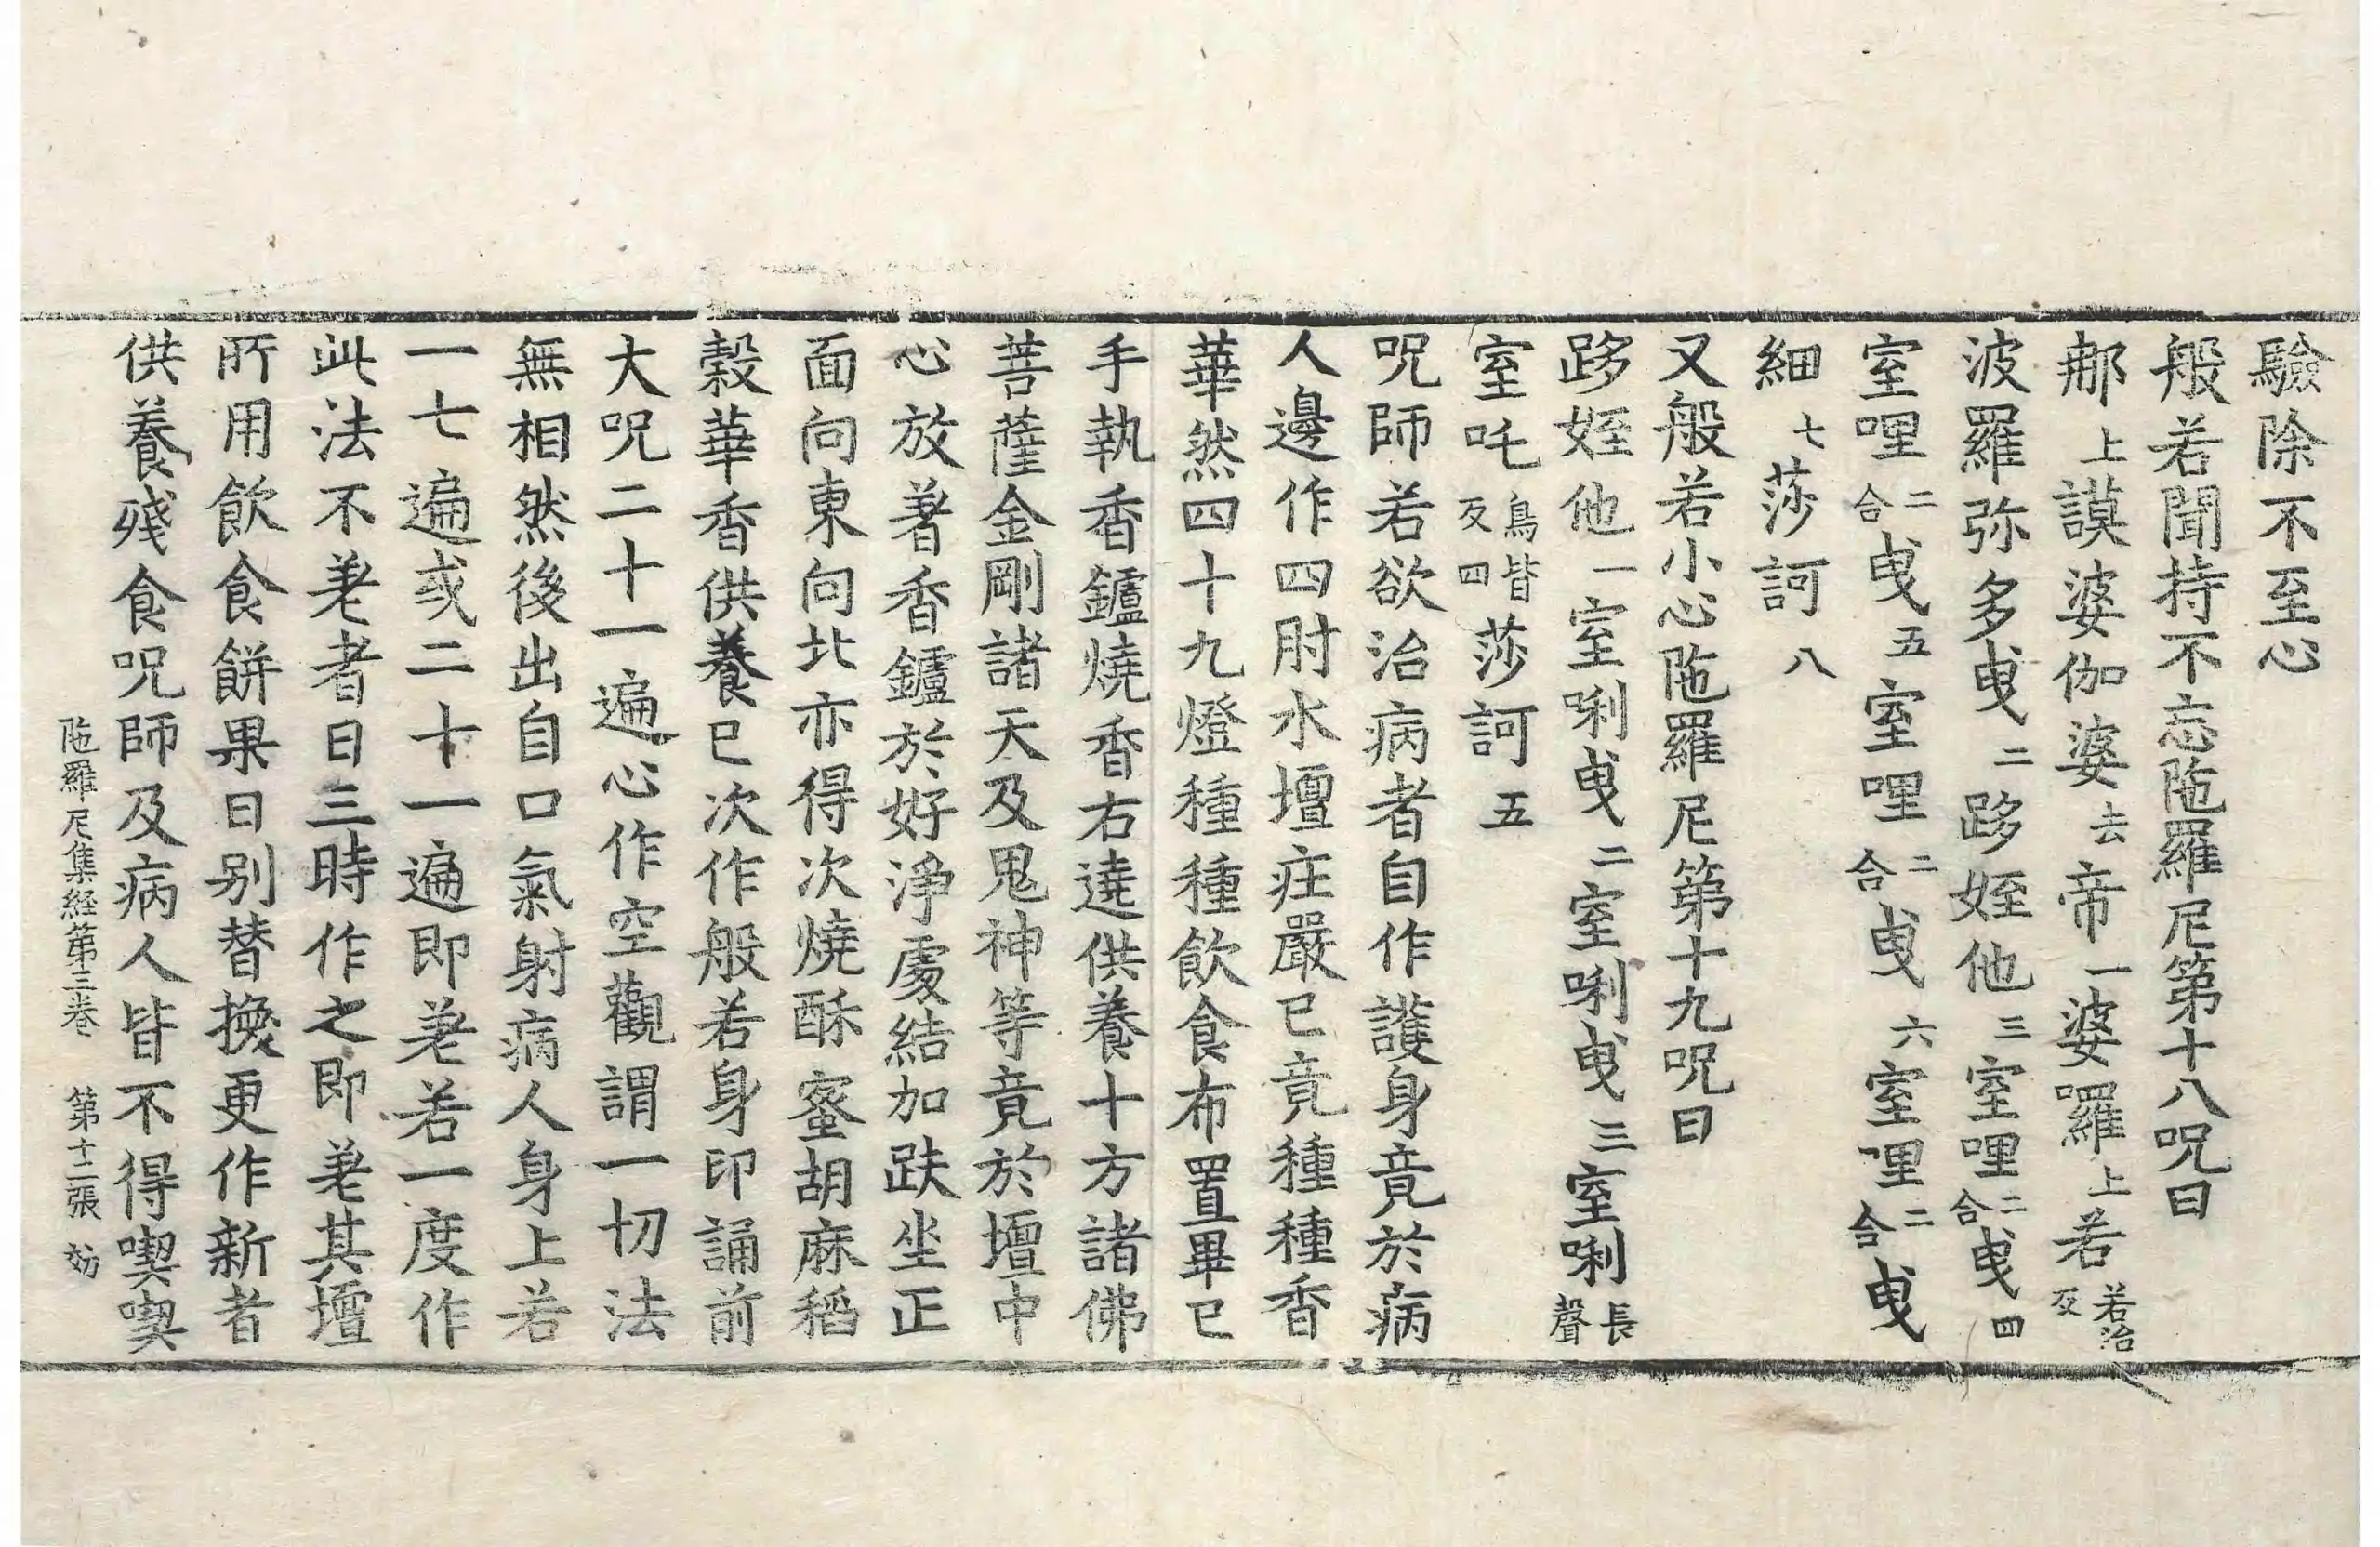 驗除不至心
般若聞持不忘陁羅尼第十八呪曰
那上謨婆伽婆去帝一婆囉上若若治反
波羅弥多曳二跢姪他三室哩二合曳四
室哩二合曳五室哩二合曳六室哩二合曳
細七莎訶八
又般若小心陁羅尼第十九呪曰
跢姪他一室唎曳二室唎曳三室唎長聲
室吒鳥皆反四莎訶五
呪師若欲治病者自作護身竟於病
人邊作四肘水壇庄嚴已竟種種香
華然四十九燈種種飲食布置畢已
手執香鑪燒香右遶供養十方諸佛
菩薩金剛諸天及鬼神等竟於壇中
心放著香鑪於好淨處結加趺坐正
面向東向北亦得次燒酥蜜胡麻稻
穀華香供養已次作般若身印誦前
大呪二十一遍心作空觀謂一切法
無相然後出自口氣射病人身上若
一七遍或二十一遍即差若一度作
此法不差者日三時作之即差其壇
所用飲食餅果日別替換更作新者
供養殘食呪師及病人皆不得喫喫
陁羅尼集経第三卷　第十二張　効